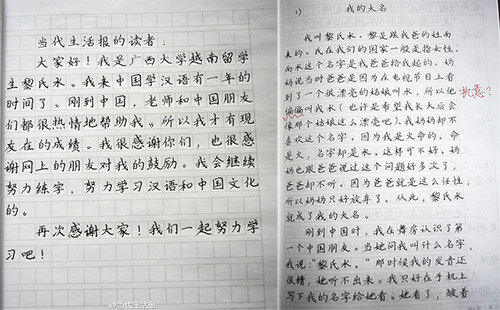 当代生活报的读者：
大家好！我是广西大学越南留学
生黎氏水。我来中国学汉语有一年的
时间了。刚到中国，老师和中国朋友
们都很热情地帮助我。所以我才有现
在的成绩。我很感谢你们，也很感
谢网上的朋友对我的鼓励。我会继续
努力练字，努力学习汉语和中国文化
的。
再次感谢大家！我们一起努力学
习吧！
@当代生活报
我的大名
我叫黎氏水。黎是跟我爸的姓而
来的。氏在我们的国家一般是指女性，
而水这个名字是我爸爸给我起的。奶
奶说当时爸爸是因为在电视节目上看
到了一个很漂亮的姑娘叫水，所以他
偏偏叫我水（也许是希望我长大后会
执意？
像那个姑娘这么漂亮吧）。我奶奶却不
喜欢这个名字，因为我是火命的，命
是火，名字却是水。这样可不好。奶
奶也跟爸爸说过这个问题好多次了，
爸爸却不听。因为爸爸就是这么任性，
所以奶奶只好放弃了。从此，黎氏水
就成了我的大名。
刚到中国时，我在舞房认识了第
一个中国朋友。当她问我叫什么名字，
我说："黎氏水。"那时候我的发音还
很糟，她听不出来。我只好在手机上
写下我的名字给她看。她看了，皱着